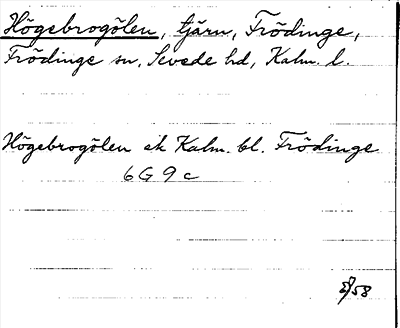 Högebrogölen, tjärn, Frödinge,
Frödinge sn, Sevede hd, Kalm. l.
Högebrogölen ek Kalm. bl. Frödinge
6G9c
58